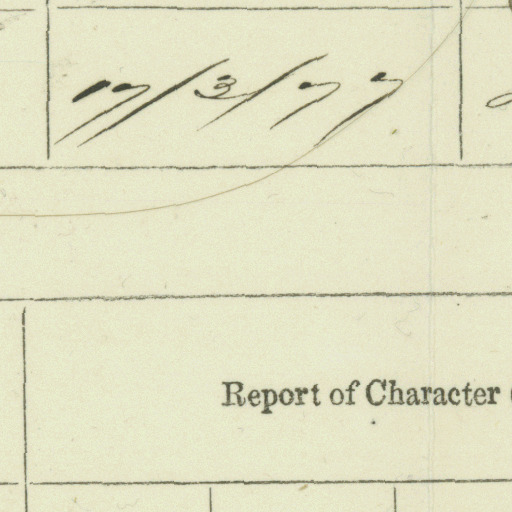 17/3/77
Report of Character